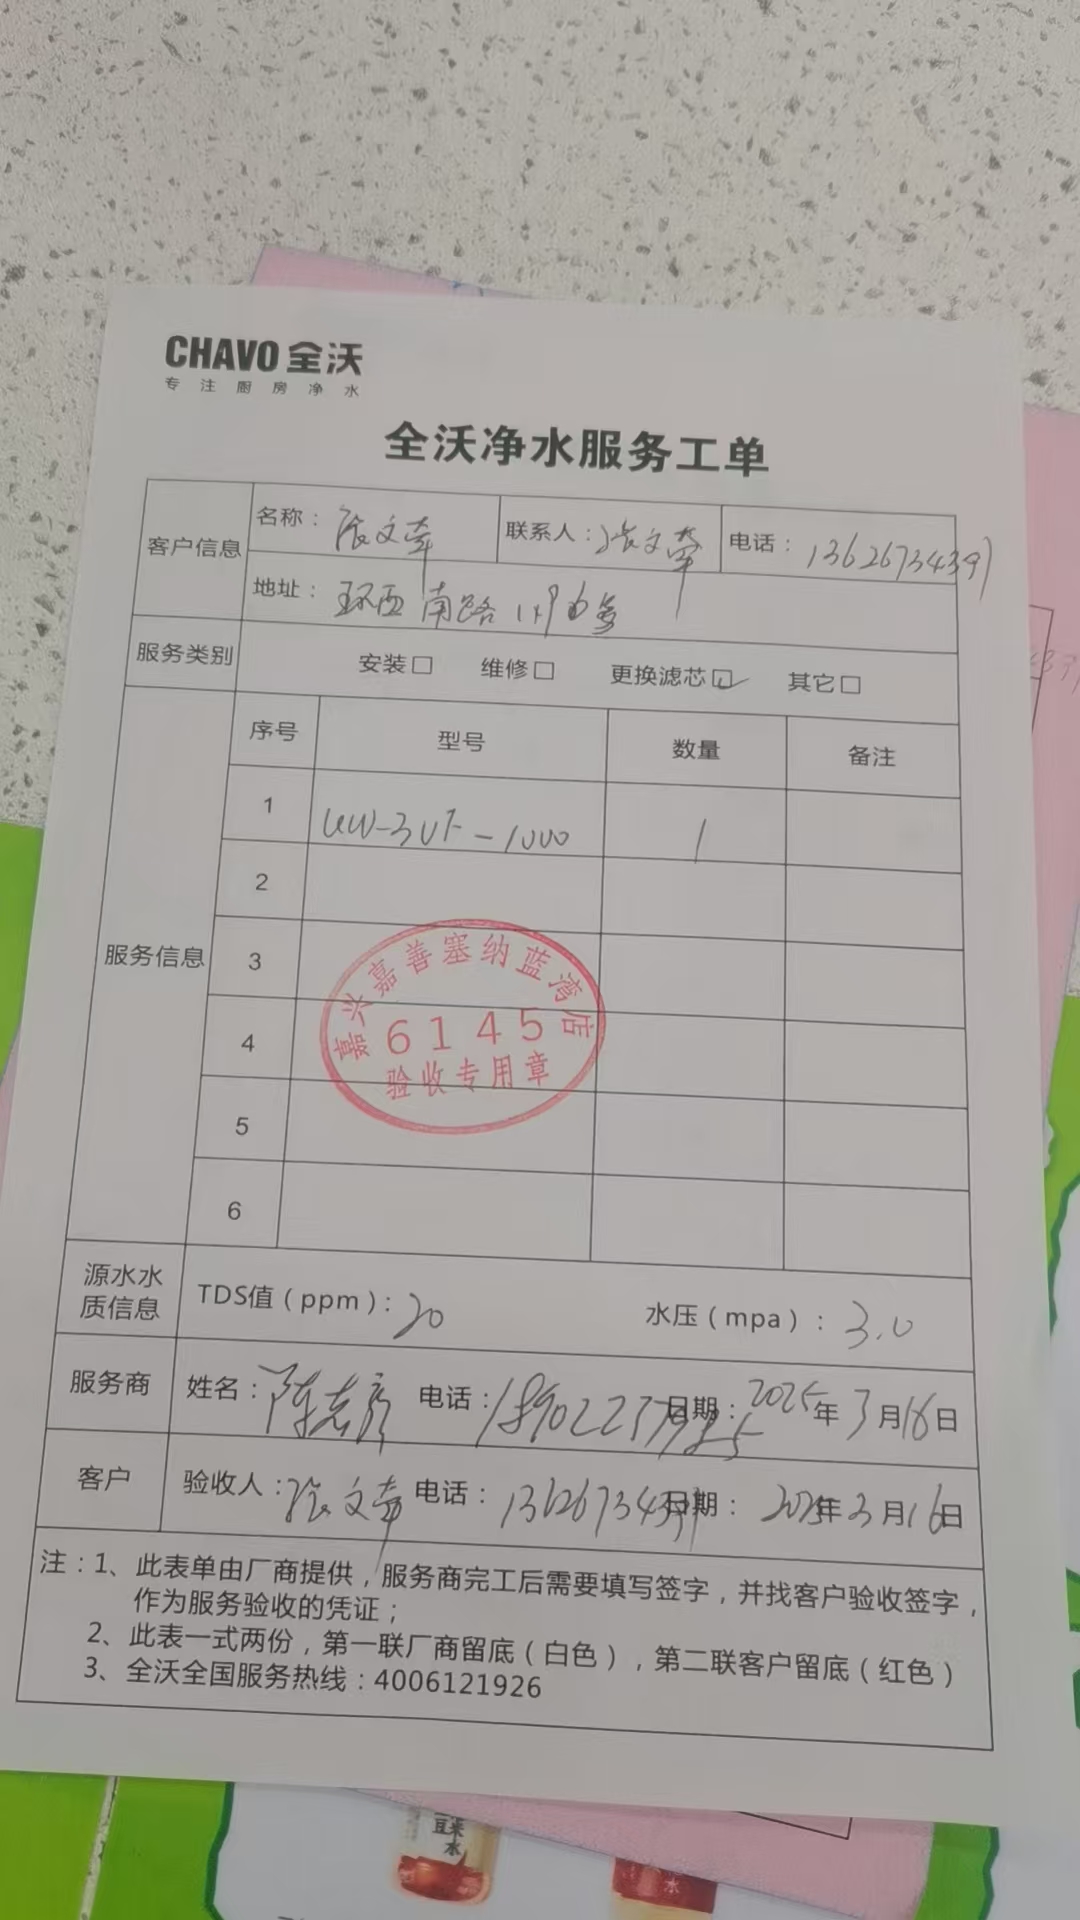 CHAVO 全沃
专注厨房净水
全沃净水服务工单
客户信息 名称：张文牵 联系人：张文牵 电话：13626734397
地址：环西南路
服务类别 安装□ 维修□ 更换滤芯☑ 其它□
服务信息 序号 型号 数量 备注
1 UW-3UF-1000 1
2
3
4
5
6
嘉兴嘉善塞纳蓝湾店
6145
验收专用章
源水水质信息 TDS值（ppm）：20 水压（mpa）：3.0
服务商 姓名：陈志彦 电话： 日期：2025年3月16日
客户 验收人：张文牵 电话：13626734397 日期：2025年3月16日
注：1、此表单由厂商提供，服务商完工后需要填写签字，并找客户验收签字，
作为服务验收的凭证；
2、此表一式两份，第一联厂商留底（白色），第二联客户留底（红色）
3、全沃全国服务热线：4006121926
豆
水
水